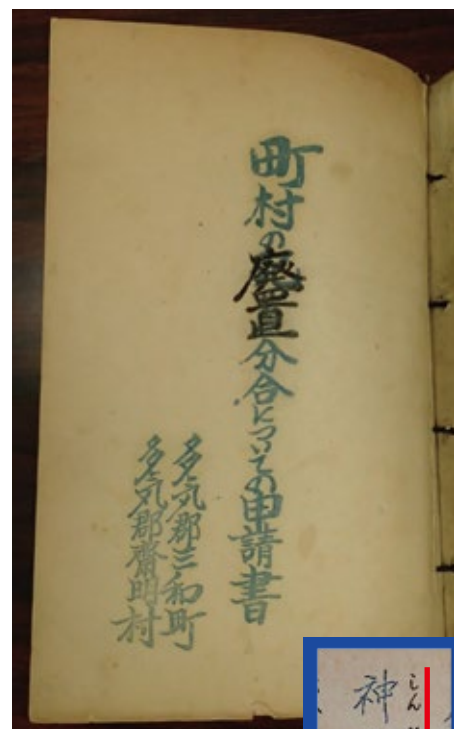 町村の廃置分合についての申請書
多気郡三和町
多気郡齋明村
神
しん